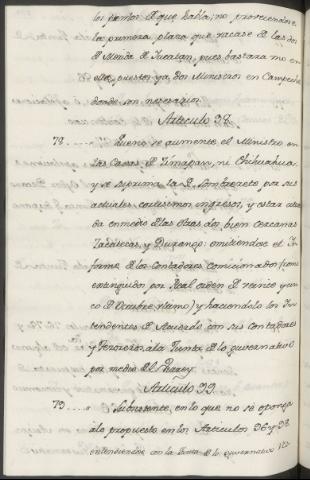 los puntos de que habla; no proveiendose
la primera plaza que vacase de las dos
de Merida de Yucatan, pues bastara no en
ella, puestos ya dos Ministros en Campeche
donde son necesarios
Articulo 98.
78.... Bueno se aumente el Ministro en
las Caxas de Zimapan, ni Chihuahua
y se suprima la de Sombrerete, por sus
actuales cortisimos ingresos, y estar cituada
en medio de las otras dos bien cercanas
Zacatecas, y Durango: omitiendose el In-
forme de los Contadores comicionados (como
extinguido por Real orden de veinte y un-
co de Octubre ultimo) y haciendolo los In-
tendentes de Acuerdo con sus Contadores
y Tesoreros á la Junta de lo guvernativo
por medio del Virrey.
Articulo 99.
79.... Subsistente, en lo que no se oponga
á lo propuesto en los Articulos 96 y 98
entendiendose con la Junta de lo guvernativo